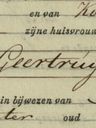 en van
zijne huisvrouw
Geertruy
in bijwezen van
ter oud